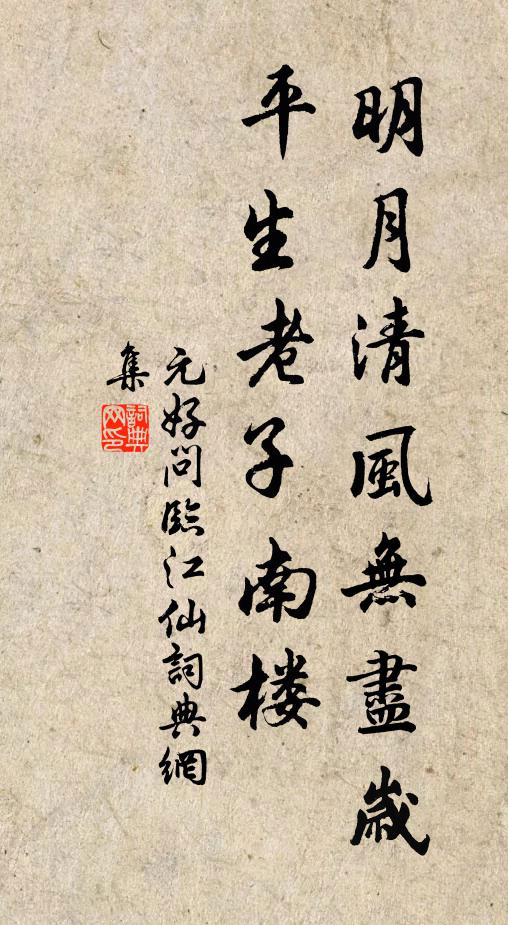 明月清風無盡歲
平生老子南楼
元好问臨江仙詞典網
集
詞典网印